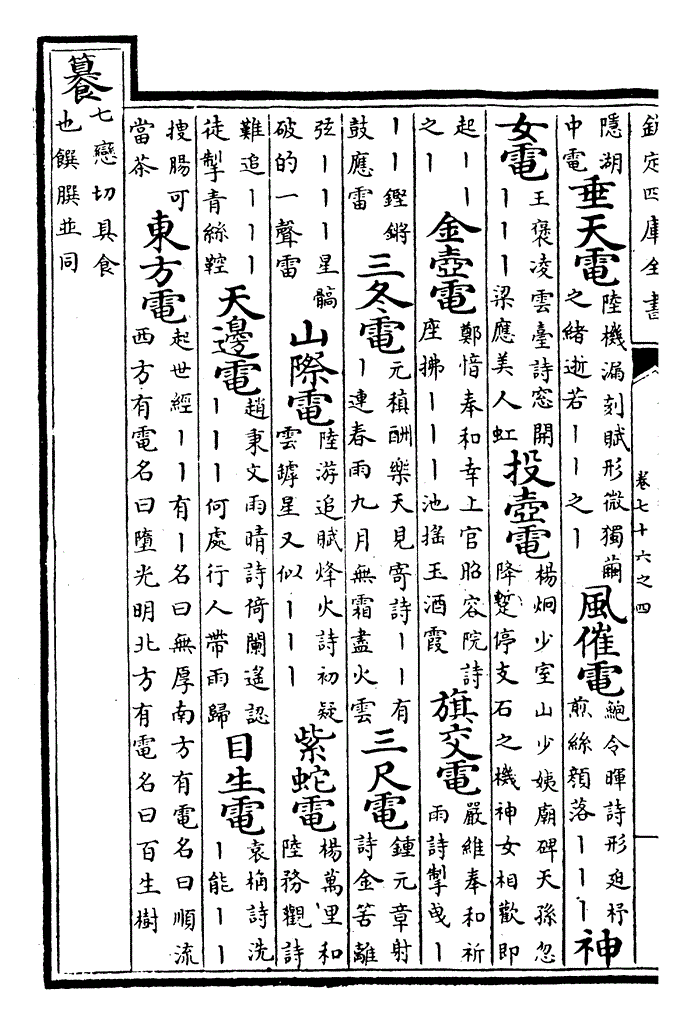 欽定四庫全書 卷七十六之四
隱湖
中電
垂天電
陸機漏刻賦形微獨繭
之緒逝若丨丨之丨
風催電
鮑令暉詩形迫杼
煎絲顏落丨丨丨
神
女電
王褒凌雲臺詩窓開
丨丨丨梁應美人虹
投壺電
楊炯少室山少姨廟碑天孫忽
降蹔停支石之機神女相歡即
起丨丨
之丨
金壺電
鄭愔奉和幸上官昭容院詩
座拂丨丨丨池搖玉酒霞
旗交電
嚴維奉和祈
雨詩掣曵丨
丨丨鏗鏘
鼓應雷
三冬電
元稹酬樂天見寄詩丨丨有
丨連春雨九月無霜盡火雲
三尺電
鍾元章射
詩金笴離
弦丨丨丨星髇
破的一聲雷
山際電
陸游追賦烽火詩初疑
雲罅星又似丨丨丨
紫蛇電
楊萬里和
陸務觀詩
難追丨丨丨
徒掣青絲鞚
天邊電
趙秉文雨晴詩倚闌遙認
丨丨丨何處行人帶雨歸
目生電
袁桷詩洗
丨能丨丨
搜腸可
當茶
東方電
起世經丨丨有丨名曰無厚南方有電名曰順流
西方有電名曰墮光明北方有電名曰百生樹
籑
七戀切具食
也饌並同